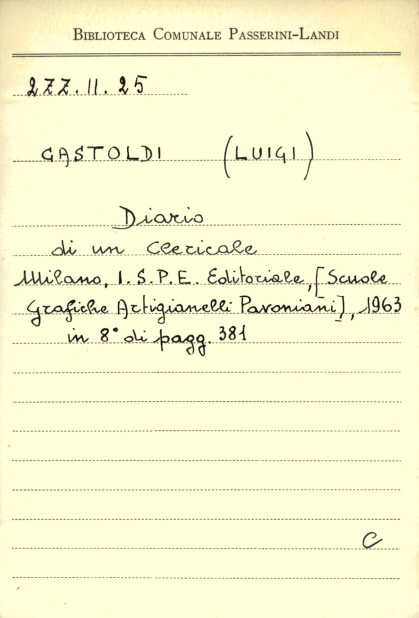 BIBLIOTECA COMUNALE PASSERINI-LANDI
2ZZ.II.25
GASTOLDI (LUIGI)
Diario
di un clericale
Milano, I.S.P.E. Editoriale, [Scuole
Grafiche Artigianelli Pavoniani], 1963
in 8° di pagg. 381
C